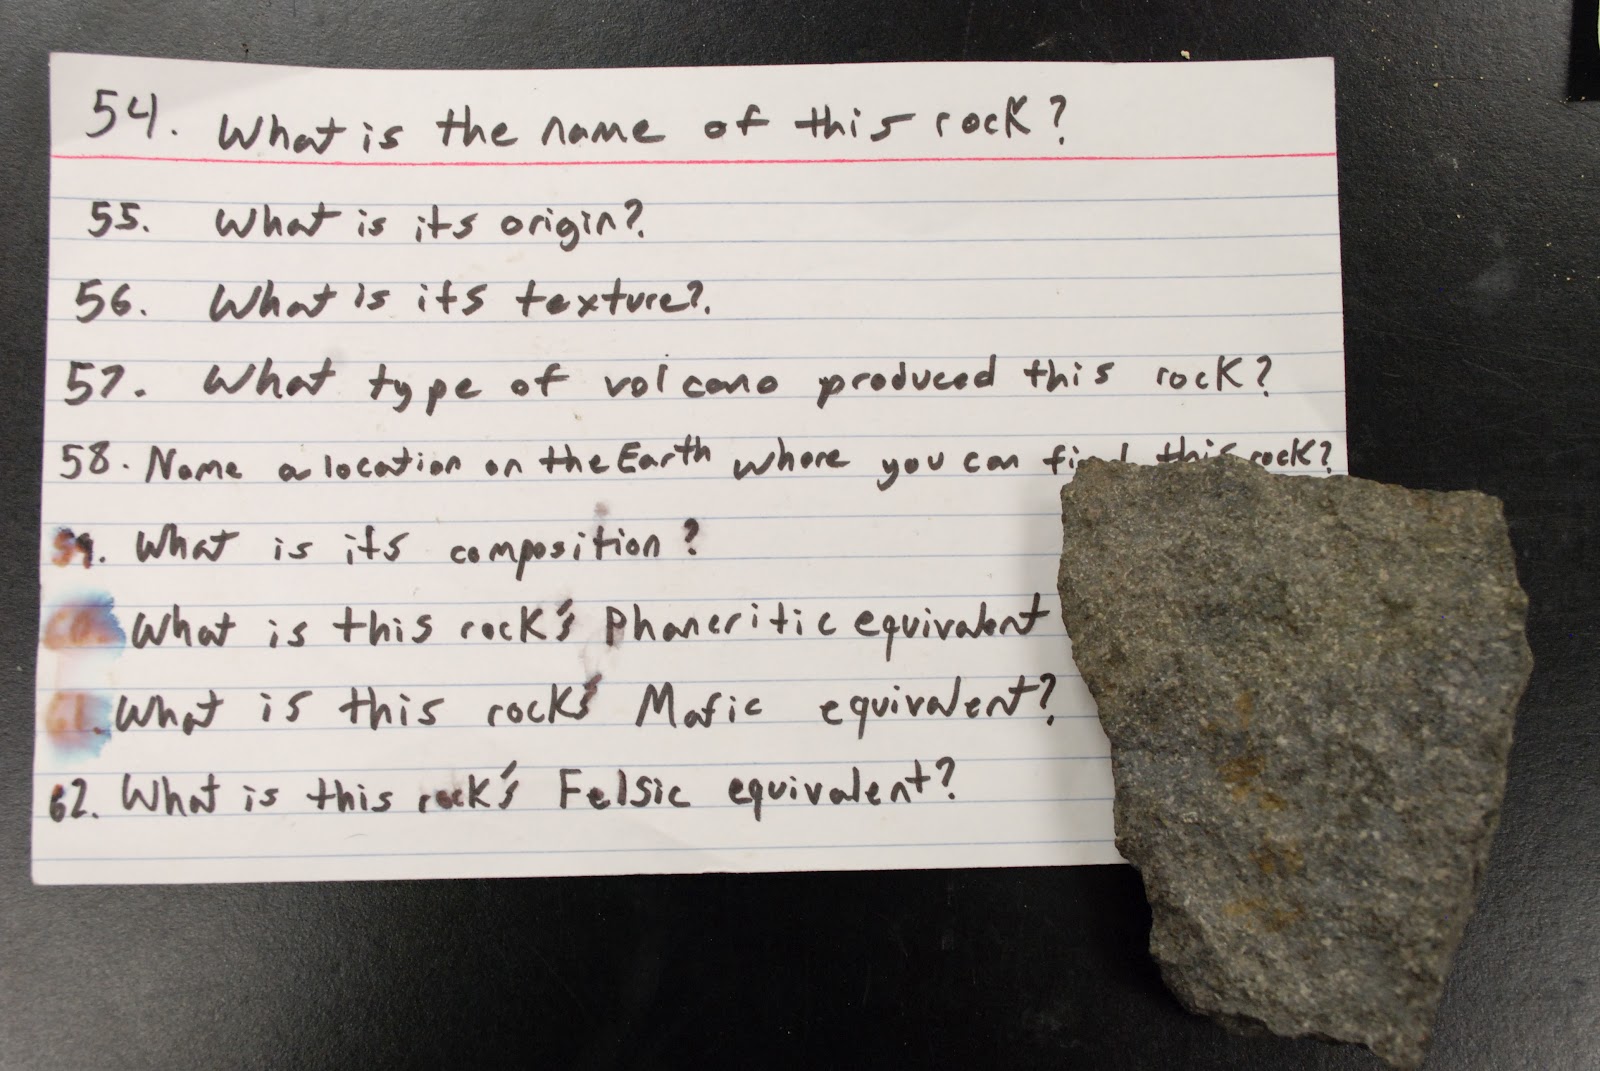 54. What is the name of this rock?
55. What is its origin?
56. What is its texture?
57. What type of volcano produced this rock?
58. Name a location on the Earth where you can find this rock?
59. What is its composition?
60. What is this rock's Phaneritic equivalent
61. What is this rock's Mafic equivalent?
62. What is this rock's Felsic equivalent?